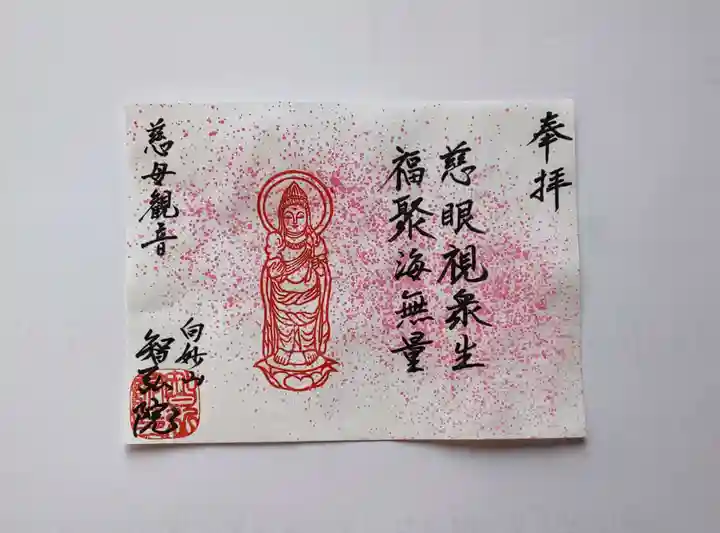 奉拝
慈眼視衆生
福聚海無量
慈母観音
向妙山
智弘院